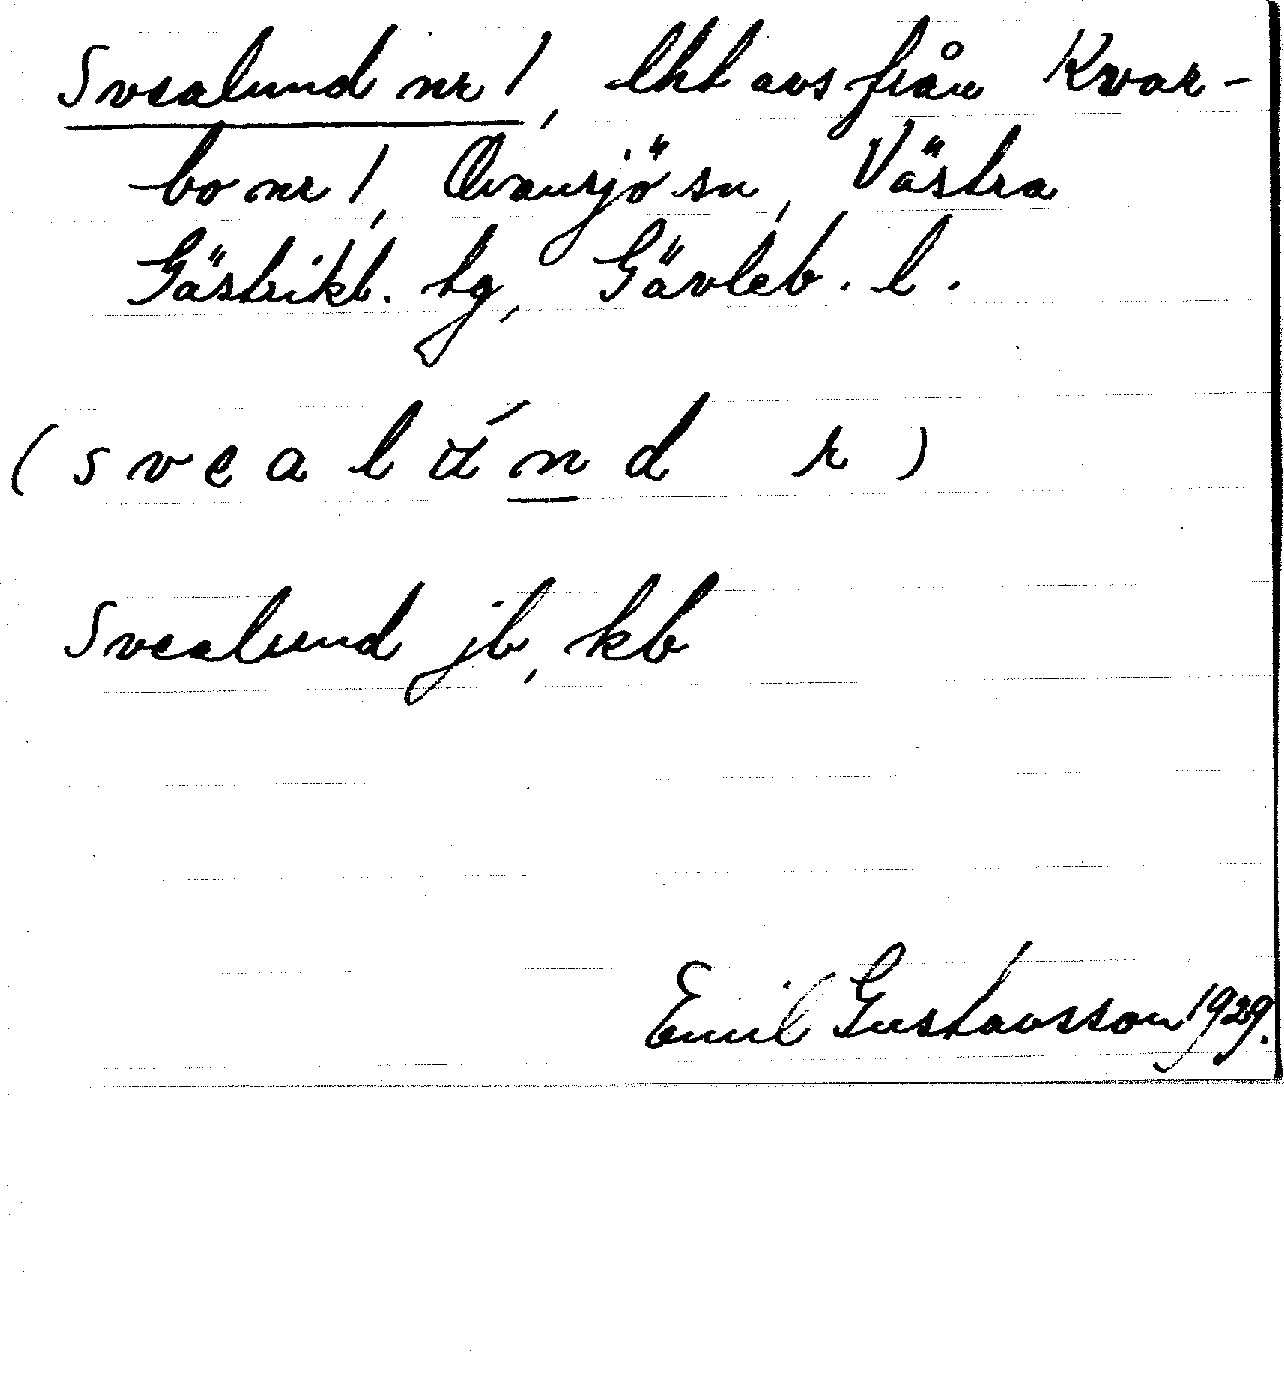 Svealund nr 1, lht avs från Kvar-
bo nr 1, Ovansjö sn, Västra
Gästrikl. tg, Gävleb. l.
(svealúnd r)
Svealund jb, kb
Emil Gustavsson 1929.